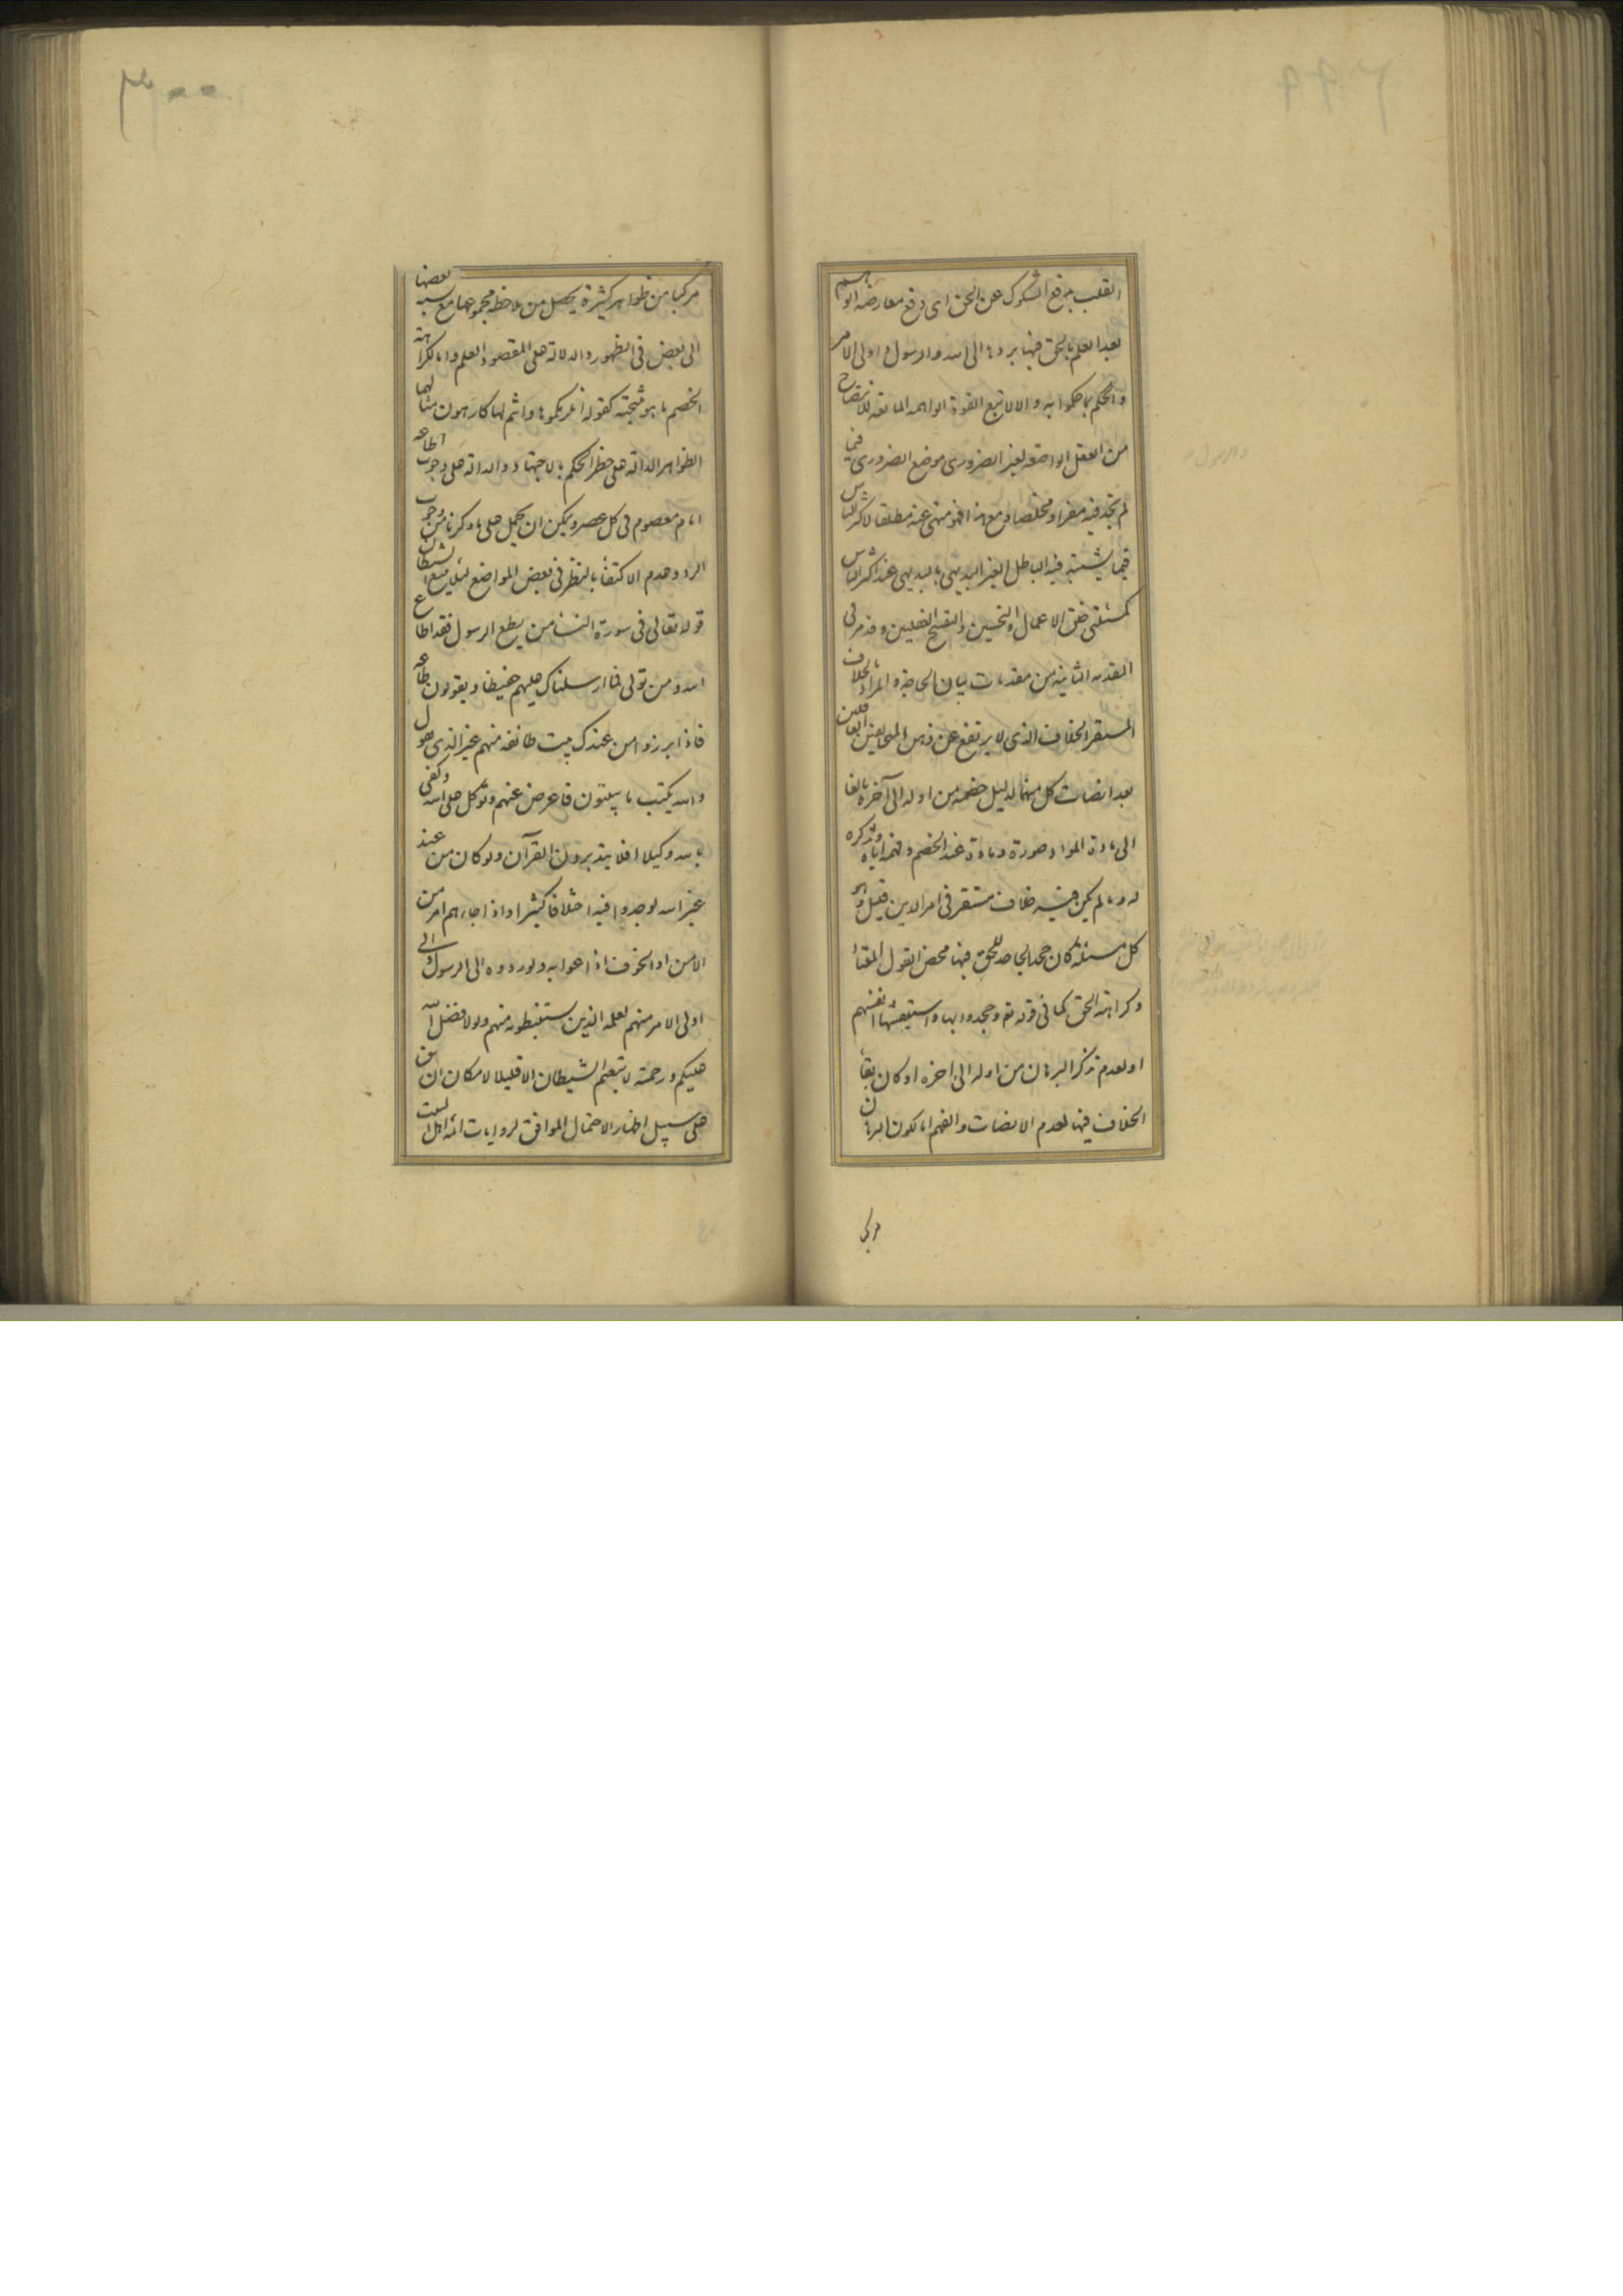 القلب بدفع الشكوك عن الحق ای دفع معارضة الوهم
بعد العلم بالحق فیها بردها الی الله والرسول و اولی الامر
والحکم بما حکموا به والا لاتبع القوة الواهمة المانعة للانصات
من العقل الواضعة لغیر الضروری موضع الضروری فیما
لم تجد فیه مفرا و مخلصا و مع هذا فهو منهی عنه مطلقا لاکثر الناس
فیما یشتبه فیه الباطل الغیر البدیهی بالبدیهی عند اکثر الناس
کمسئلتی خلق الاعمال و التحسین و التقبیح العقلیین و قد مر فی
المقدمة الثانیة من مقدمات بیان الحاجة المراد بالخلاف
المستقر الخلاف الذی لا یرتفع عن ذهن المتخالفین العاقلین
بعد انصات کل منهما لدلیل خصمه من اوله الی آخره بالغا
الی مادة المواد صورة و مادة عند الخصم و فهمه ایاه و تذکره
له و ما لم یکن فیه خلاف مستقر فی امر الدین قیل و هو
کل مسئلة کان جحد الجاحد للحق فیها محض القول لمقتا
وکراهة الحق کما فی قوله تع وجحدوا بها واستیقنتها انفسهم
او لعدم تذکر البرهان من اوله الی اخره او کان بقا
الخلاف فیها لعدم الانصات والفهم اما لکون البرهان
مرکبا
مرکبا من ظواهر کثیرة یحصل من ملاحظة مجموعها مع نسبة بعضها
الی بعض فی الظهور والدلالة علی المقصود العلم و اما لکراهة
الخصم ما هو نتیجته کقوله انلزمکموها وانتم لها کارهون مثالها
الظواهر الدالة علی حظر الحکم بالاجتهاد والدالة علی وجوب اطاعة
امام معصوم فی کل عصر ویمکن ان یحمل علی ما ذکرنا من وجوب
الرد و عدم الاکتفاء بالنظر فی بعض المواضع لئلا یتبع الشیطان
قوله تعالی فی سورة النساء من یطع الرسول فقد اطاع
الله ومن تولی فما ارسلناک علیهم حفیظا ویقولون طاعة
فاذا برزوا من عندک بیت طائفة منهم غیر الذی تقول
والله یکتب ما یبیتون فاعرض عنهم وتوکل علی الله وکفی
بالله وکیلا افلا یتدبرون القرآن ولو کان من عند
غیر الله لوجدوا فیه اختلافا کثیرا واذا جاءهم امر من
الامن او الخوف اذاعوا به ولو ردوه الی الرسول والی
اولی الامر منهم لعلمه الذین یستنبطونه منهم ولولا فضل الله
علیکم ورحمته لاتبعتم الشیطان الا قلیلا لامکان ان یق
علی سبیل اظهار الاحتمال الموافق لروایات ائمة اهل البیت